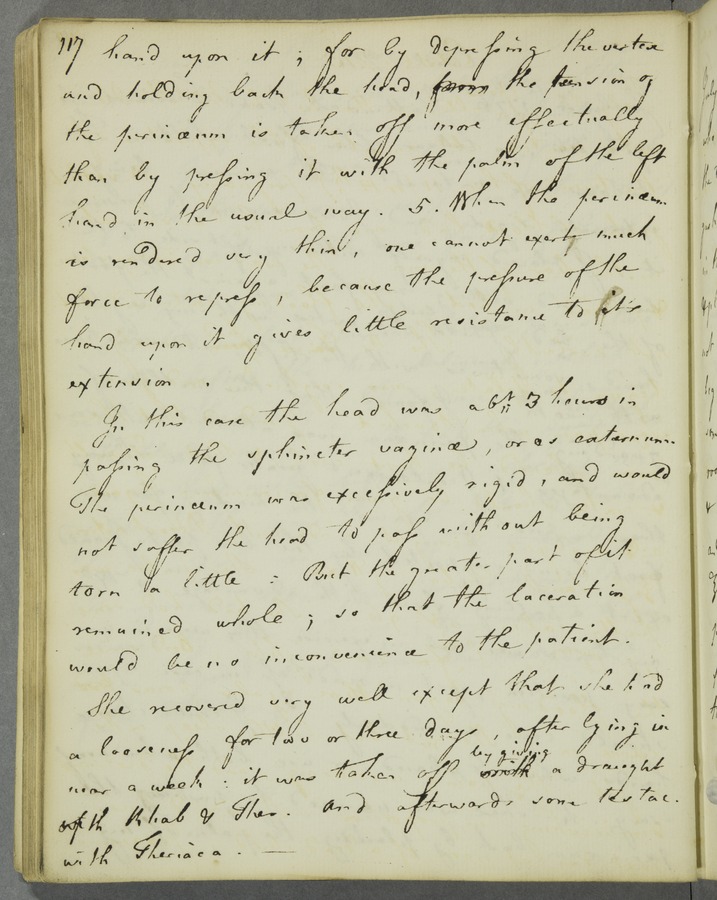 117 hand upon it ; for by depressing the vertex
and holding back the head, from the tension of
the perinæum is taken off more effectually
than by pressing it with the palm of the left
hand in the usual way. 5. When the perinæum
is rendered very thin, one cannot exert much
force to repress, because the pressure of the
hand upon it gives little resistance to its
extension .
In this case the head was abt 3 hours in
passing the sphincter vaginæ, or os externum.
The perinæum was excessively rigid, and would
not suffer the head to pass without being
torn a little : But the greater part of it
remained whole ; so that the laceration
would be no inconvenience to the patient.
She recovered very well except that she had
a looseness for two or three days, after lying in
near a week : it was taken off with by giving a draught
with Rhab & Ther. and afterwards some testac.
with Theriaca. —